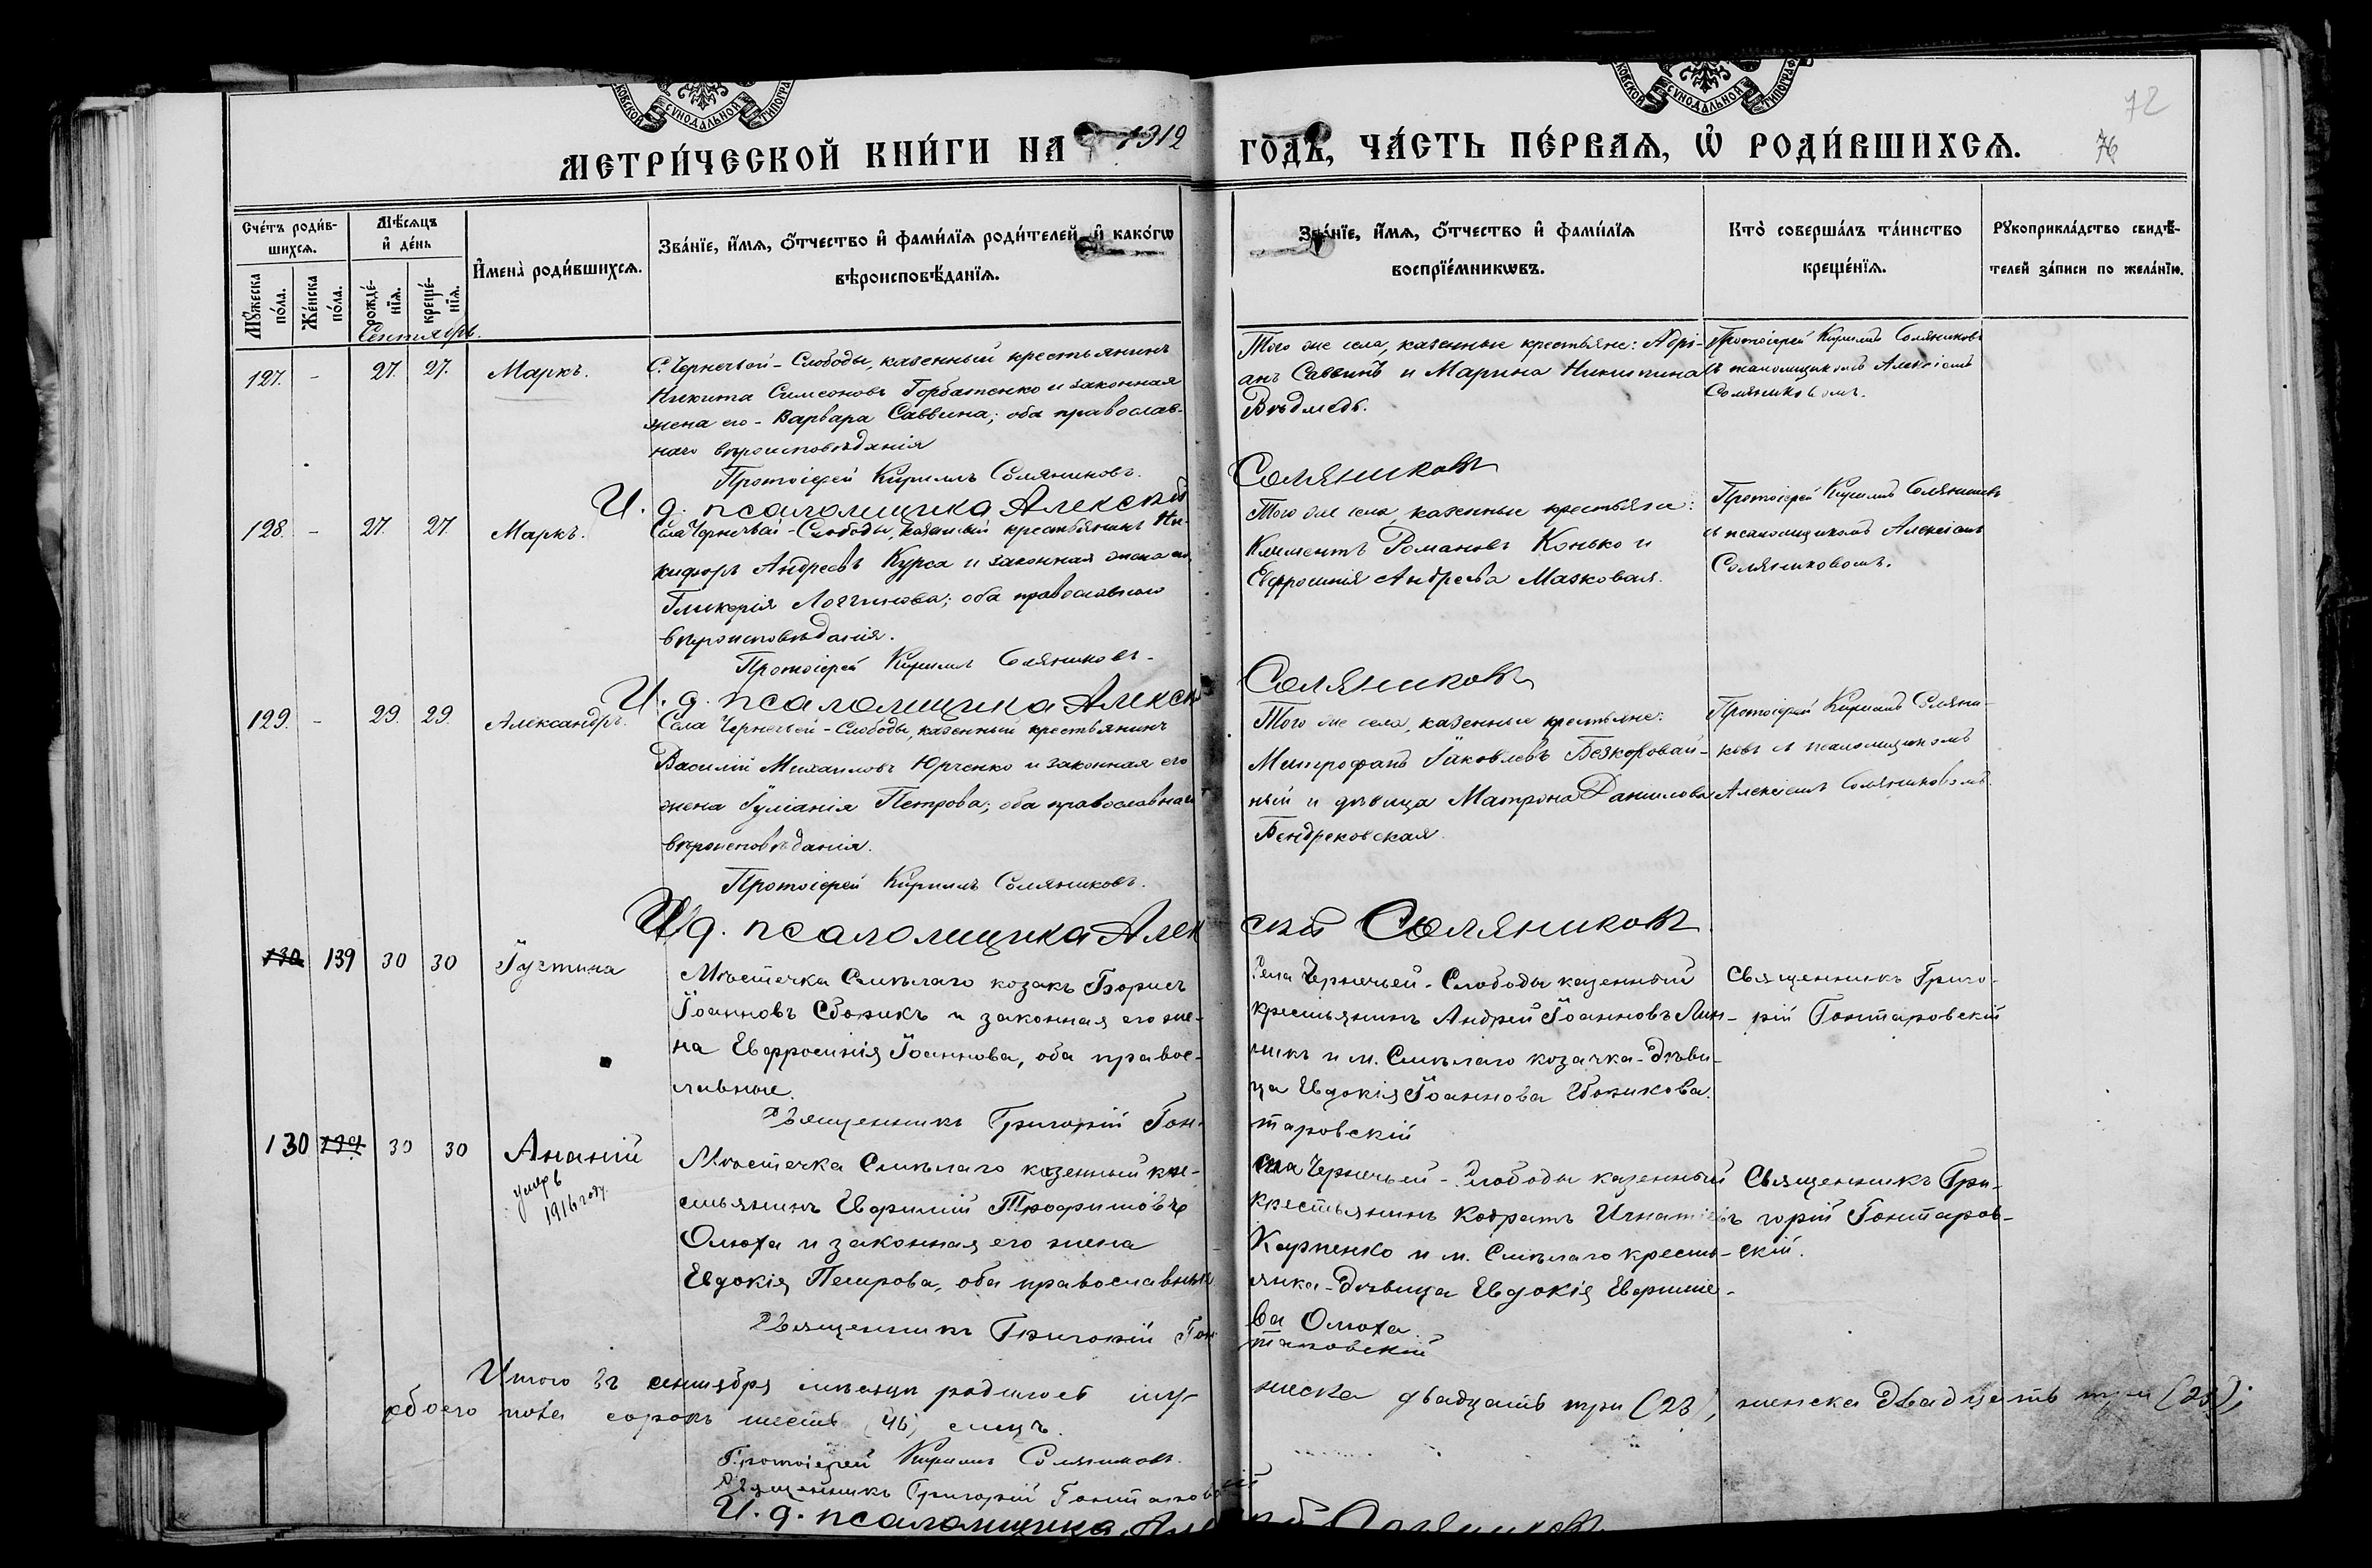 КОВСКОЙ СѴНОДАЛЬНОЙ ТИПОГРА
КОВСКОЙ СѴНОДАЛЬНОЙ ТИПОГРАФ
72
76
МЕТРИ́ЧЕСКОЙ КНИ́ГИ НА 1912 ГОДЪ, ЧА́СТЬ ПЕ́РВАЯ, Ѡ҆ РОДИ́ВШИХСЯ.
Сче́тъ роди́в-
шихся.
Мꙋ́жеска по́ла.
Же́нска по́ла.
Мѣ́сяцъ и҆ де́нь
рожде́-
нїя.
креще́-
нїя.
И҆мена̀ роди́вшихся.
Зва́нїе, и҆́мя, ѻ҆́тчество и҆ фами́лїя роди́телей, и҆ како́гѡ
вѣроисповѣ́данїя.
Зва́нїе, и҆́мя, ѻ҆́тчество и҆ фами́лїя
воспрїе́мникѡвъ.
Кто̀ соверша́лъ та́инство
креще́нїя.
Рꙋкоприкла́дство свидѣ́-
телей за́писи по жела́нїю.
Сентябрь.
127. - 27. 27. Маркъ.
С. Чернечьей-Слободы, казенный крестьянинъ
Никита Симеоновъ Горбатенко и законная
жена его - Варвара Саввина; оба православ-
наго вѣроисповѣданія
Протоіерей Кириллъ Соляниковъ.
И. д. псаломщика Алексѣй Соляниковъ
Того же села, казенные крестьяне: Адрі-
анъ Саввинъ и Марина Никитина
Вѣдмедь.
Протоіерей Кириллъ Соляниковъ
съ псаломщикомъ Алексіемъ
Соляниковымъ.
128. - 27. 27. Маркъ.
Села Чернечьей-Слободы, казенный крестьянинъ Ни-
кифоръ Андреевъ Курса и законная жена его
Гликерія Логгинова; оба православнаго
вѣроисповѣданія.
Протоіерей Кириллъ Соляниковъ.
И. д. псаломщика Алексѣй Соляниковъ
Того же села, казенные крестьяне:
Климентъ Романовъ Конько и
Евфросинія Андреева Мазковая.
Протоіерей Кириллъ Соляниковъ
съ псаломщикомъ Алексіемъ
Соляниковымъ.
129. - 29. 29. Александръ.
Села Чернечьей-Слободы, казенный крестьянинъ
Василій Михаиловъ Юрченко и законная его
жена Іуліанія Петрова; оба православнаго
вѣроисповѣданія.
Протоіерей Кириллъ Соляниковъ.
И. д. псаломщика Алексѣй Соляниковъ
Того же села, казенные крестьяне:
Митрофанъ Іаковлевъ Безкоровай-
ный и дѣвица Матрона Данилова
Бендрековская.
Протоіерей Кириллъ Соляни-
ковъ съ псаломщикомъ
Алексіемъ Соляниковымъ.
130 139 30 30 Іустина
Мѣстечка Смѣлаго козакъ Борисъ
Іоанновъ Сбоникъ и законная его же-
на Евфросинія Іоаннова, оба правос-
лавные.
Священникъ Григорій Гонтаровскій
Села Чернечьей-Слободы казенный
крестьянинъ Андрей Іоанновъ Лин-
никъ и м. Смѣлаго козачка-дѣви-
ца Евдокія Іоаннова Сбоникова.
Священникъ Григо-
рій Гонтаровскій
130 139 30 30 Ананій
умеръ
1916 году
Мѣстечка Смѣлаго казенный кре-
стьянинъ Евфимій Трофимовъ
Олюха и законная его жена
Евдокія Петрова, оба православные.
Священникъ Григорій Гонтаровскій
Села Чернечьей-Слободы казенный
крестьянинъ Кодратъ Игнатіевъ
Карпенко и м. Смѣлаго кресть-
янка-дѣвица Евдокія Евфиміе-
ва Олюха.
Священникъ Гри-
горій Гонтаров-
скій.
Итого въ сентябрѣ мѣсяцѣ родилось мужеска двадцать три (23), женска двадцать три (23);
обоего пола сорокъ шесть (46) лицъ.
Протоіерей Кириллъ Соляниковъ.
Священникъ Григорій Гонтаровскій
И. д. псаломщика Алексѣй Соляниковъ